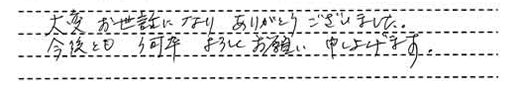 大変 お世話になり ありがとうございました。
今後とも 何卒 よろしくお願い 申し上げます。